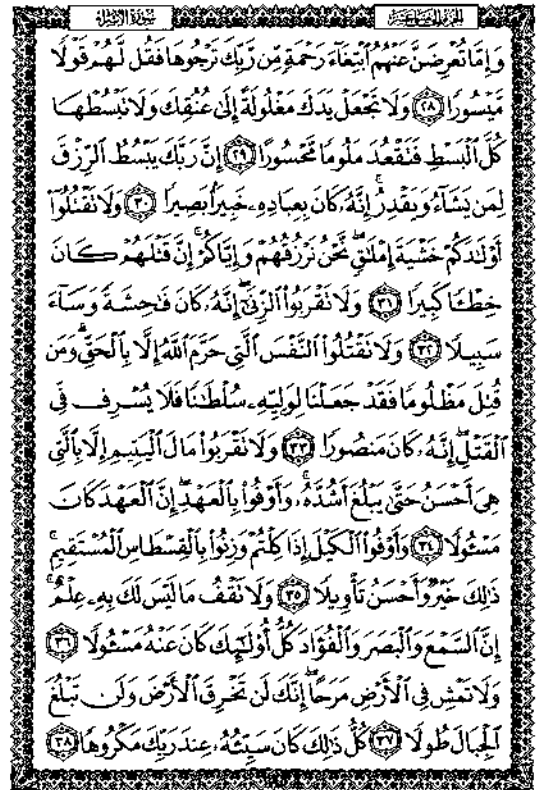 الجزء الخامس عشر
سورة الإسراء
وَإِمَّا تُعْرِضَنَّ عَنْهُمُ ٱبْتِغَآءَ رَحْمَةٍ مِّن رَّبِّكَ تَرْجُوهَا فَقُل لَّهُمْ قَوْلًا
مَّيْسُورًا ٢٨ وَلَا تَجْعَلْ يَدَكَ مَغْلُولَةً إِلَىٰ عُنُقِكَ وَلَا تَبْسُطْهَا
كُلَّ ٱلْبَسْطِ فَتَقْعُدَ مَلُومًا مَّحْسُورًا ٢٩ إِنَّ رَبَّكَ يَبْسُطُ ٱلرِّزْقَ
لِمَن يَشَآءُ وَيَقْدِرُ ۚ إِنَّهُۥ كَانَ بِعِبَادِهِۦ خَبِيرًۢا بَصِيرًا ٣٠ وَلَا تَقْتُلُوٓا۟
أَوْلَٰدَكُمْ خَشْيَةَ إِمْلَٰقٍ ۖ نَّحْنُ نَرْزُقُهُمْ وَإِيَّاكُمْ ۚ إِنَّ قَتْلَهُمْ كَانَ
خِطْـًٔا كَبِيرًا ٣١ وَلَا تَقْرَبُوا۟ ٱلزِّنَىٰٓ ۖ إِنَّهُۥ كَانَ فَٰحِشَةً وَسَآءَ
سَبِيلًا ٣٢ وَلَا تَقْتُلُوا۟ ٱلنَّفْسَ ٱلَّتِى حَرَّمَ ٱللَّهُ إِلَّا بِٱلْحَقِّ ۗ وَمَن
قُتِلَ مَظْلُومًا فَقَدْ جَعَلْنَا لِوَلِيِّهِۦ سُلْطَٰنًا فَلَا يُسْرِف فِّى
ٱلْقَتْلِ ۖ إِنَّهُۥ كَانَ مَنصُورًا ٣٣ وَلَا تَقْرَبُوا۟ مَالَ ٱلْيَتِيمِ إِلَّا بِٱلَّتِى
هِىَ أَحْسَنُ حَتَّىٰ يَبْلُغَ أَشُدَّهُۥ ۚ وَأَوْفُوا۟ بِٱلْعَهْدِ ۖ إِنَّ ٱلْعَهْدَ كَانَ
مَسْـُٔولًا ٣٤ وَأَوْفُوا۟ ٱلْكَيْلَ إِذَا كِلْتُمْ وَزِنُوا۟ بِٱلْقِسْطَاسِ ٱلْمُسْتَقِيمِ ۚ
ذَٰلِكَ خَيْرٌ وَأَحْسَنُ تَأْوِيلًا ٣٥ وَلَا تَقْفُ مَا لَيْسَ لَكَ بِهِۦ عِلْمٌ ۚ
إِنَّ ٱلسَّمْعَ وَٱلْبَصَرَ وَٱلْفُؤَادَ كُلُّ أُو۟لَٰٓئِكَ كَانَ عَنْهُ مَسْـُٔولًا ٣٦
وَلَا تَمْشِ فِى ٱلْأَرْضِ مَرَحًا ۖ إِنَّكَ لَن تَخْرِقَ ٱلْأَرْضَ وَلَن تَبْلُغَ
ٱلْجِبَالَ طُولًا ٣٧ كُلُّ ذَٰلِكَ كَانَ سَيِّئُهُۥ عِندَ رَبِّكَ مَكْرُوهًا ٣٨